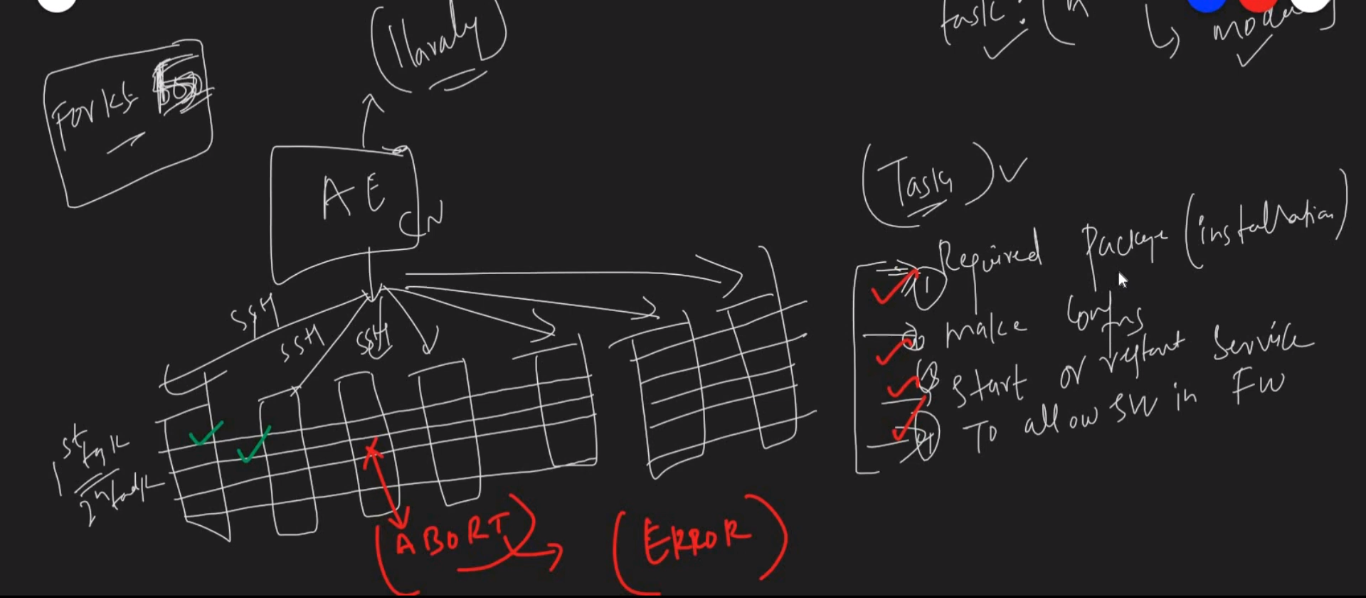 task:
Forks
AE
CN
SSH
SSH
SSH
1st task
2nd task
(ABORT)
(ERROR)
(Task)
1 Required Package (installation)
2 make configs
3 start or restart service
4 To allow SW in FW